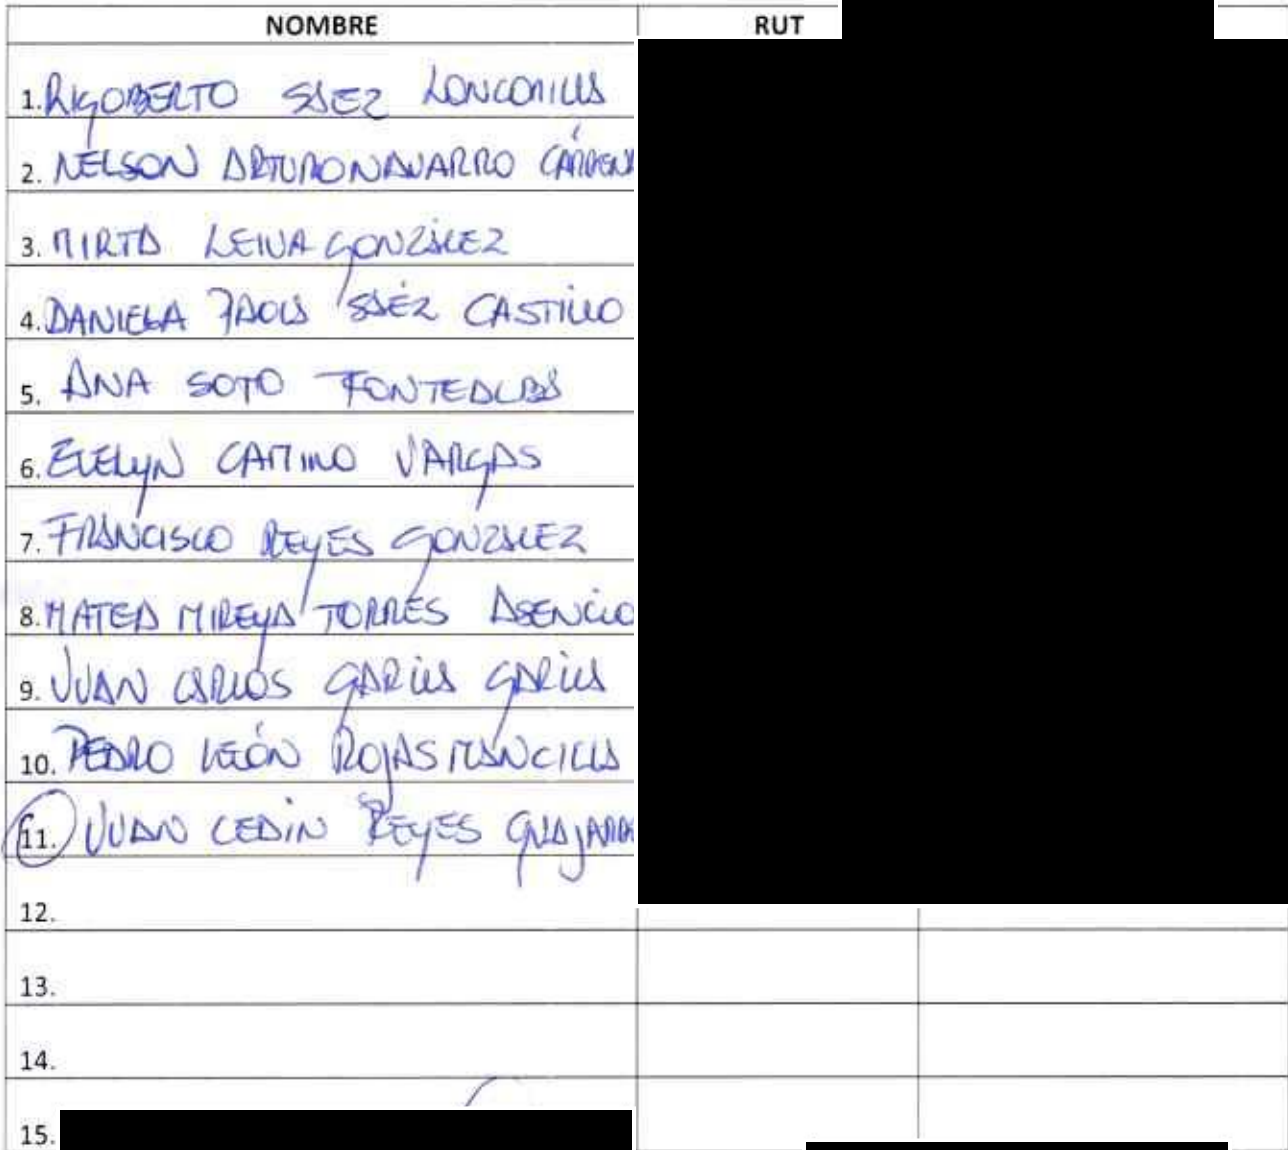 NOMBRE RUT
1. RIGOBERTO SAEZ LONCOMILLA
2. NELSON ARTURO NAVARRO CÁRDENA
3. MIRTA LEIVA GONZÁLEZ
4. DANIELA PAOLA SAÉZ CASTILLO
5. ANA SOTO FONTEALBA
6. EVELYN CAMINO VARGAS
7. FRANCISCO REYES GONZALEZ
8. MATEA MIREYA TORRES ASENCIO
9. JUAN CARLOS GARCIA GARCIA
10. PEDRO LEÓN ROJAS MANCILLA
11. JUAN REYES GUAJARD
12.
13.
14.
15.